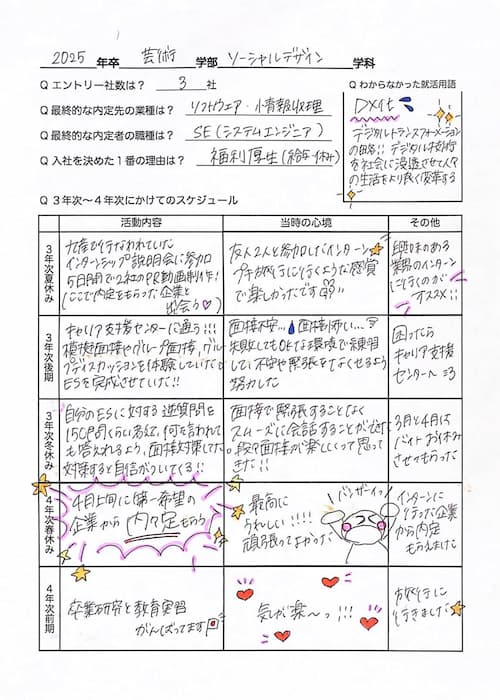 2025 年卒 芸術 学部 ソーシャルデザイン 学科
Q エントリー社数は？ 3 社
Q 最終的な内定先の業種は？ ソフトウェア・情報処理
Q 最終的な内定者の職種は？ SE(システムエンジニア)
Q 入社を決めた１番の理由は？ 福利厚生(給与・休み)
Q わからなかった就活用語
DX化
デジタルトランスフォーメーション
の略!! デジタル技術
を社会に浸透させて人々
の生活をより良く変革する
Q ３年次～４年次にかけてのスケジュール
活動内容
当時の心境
その他
３年次夏休み
九産で行なわれていた
インターンシップ説明会に参加
5日間で2社のPR動画制作!
(ここで内定をもらった企業と
出会う♡)
友人2人と参加したインターン
プチ旅行に行くような感覚
で楽しかったです
興味のある
業界のインターン
に行くのが
オススメ!!
３年次後期
キャリア支援センターに通う!!!
模擬面接やグループ面接、グルー
プディスカッションを体験していた
ESを完成させていた!!
面接不安... 面接怖い...
失敗してもOKな環境で練習
して、不安や緊張をなくせるよう
努力した
困ったら
キャリア支援
センターへ
３年次冬休み
自分のESに対する逆質問を
150問くらい考えて、何を言われて
も答えれるよう、面接対策した
対策すると自信がついてくる!!
面接で緊張することなく
スムーズに会話することができ
段々面接が楽しくなって思って
きた!!
3月と4月は
バイトお休み
させてもらった
４年次春休み
4月上旬に第一希望の
企業から 内々定 もらう
最高に
うれしい!!!!
頑張ってよかった
バンザーイッ!
インターンに
行った企業
から内定
もらえました
４年次前期
卒業研究と教育実習
がんばってます
気が楽〜っ!!!
旅行に
行きました